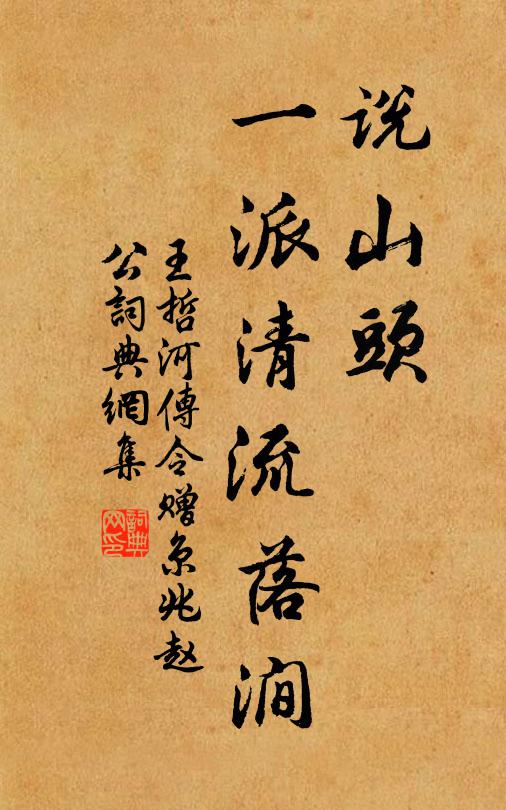 说山頭
一派清流落澗
王哲河傳令赠京兆赵
公詞典網集
詞典
网印